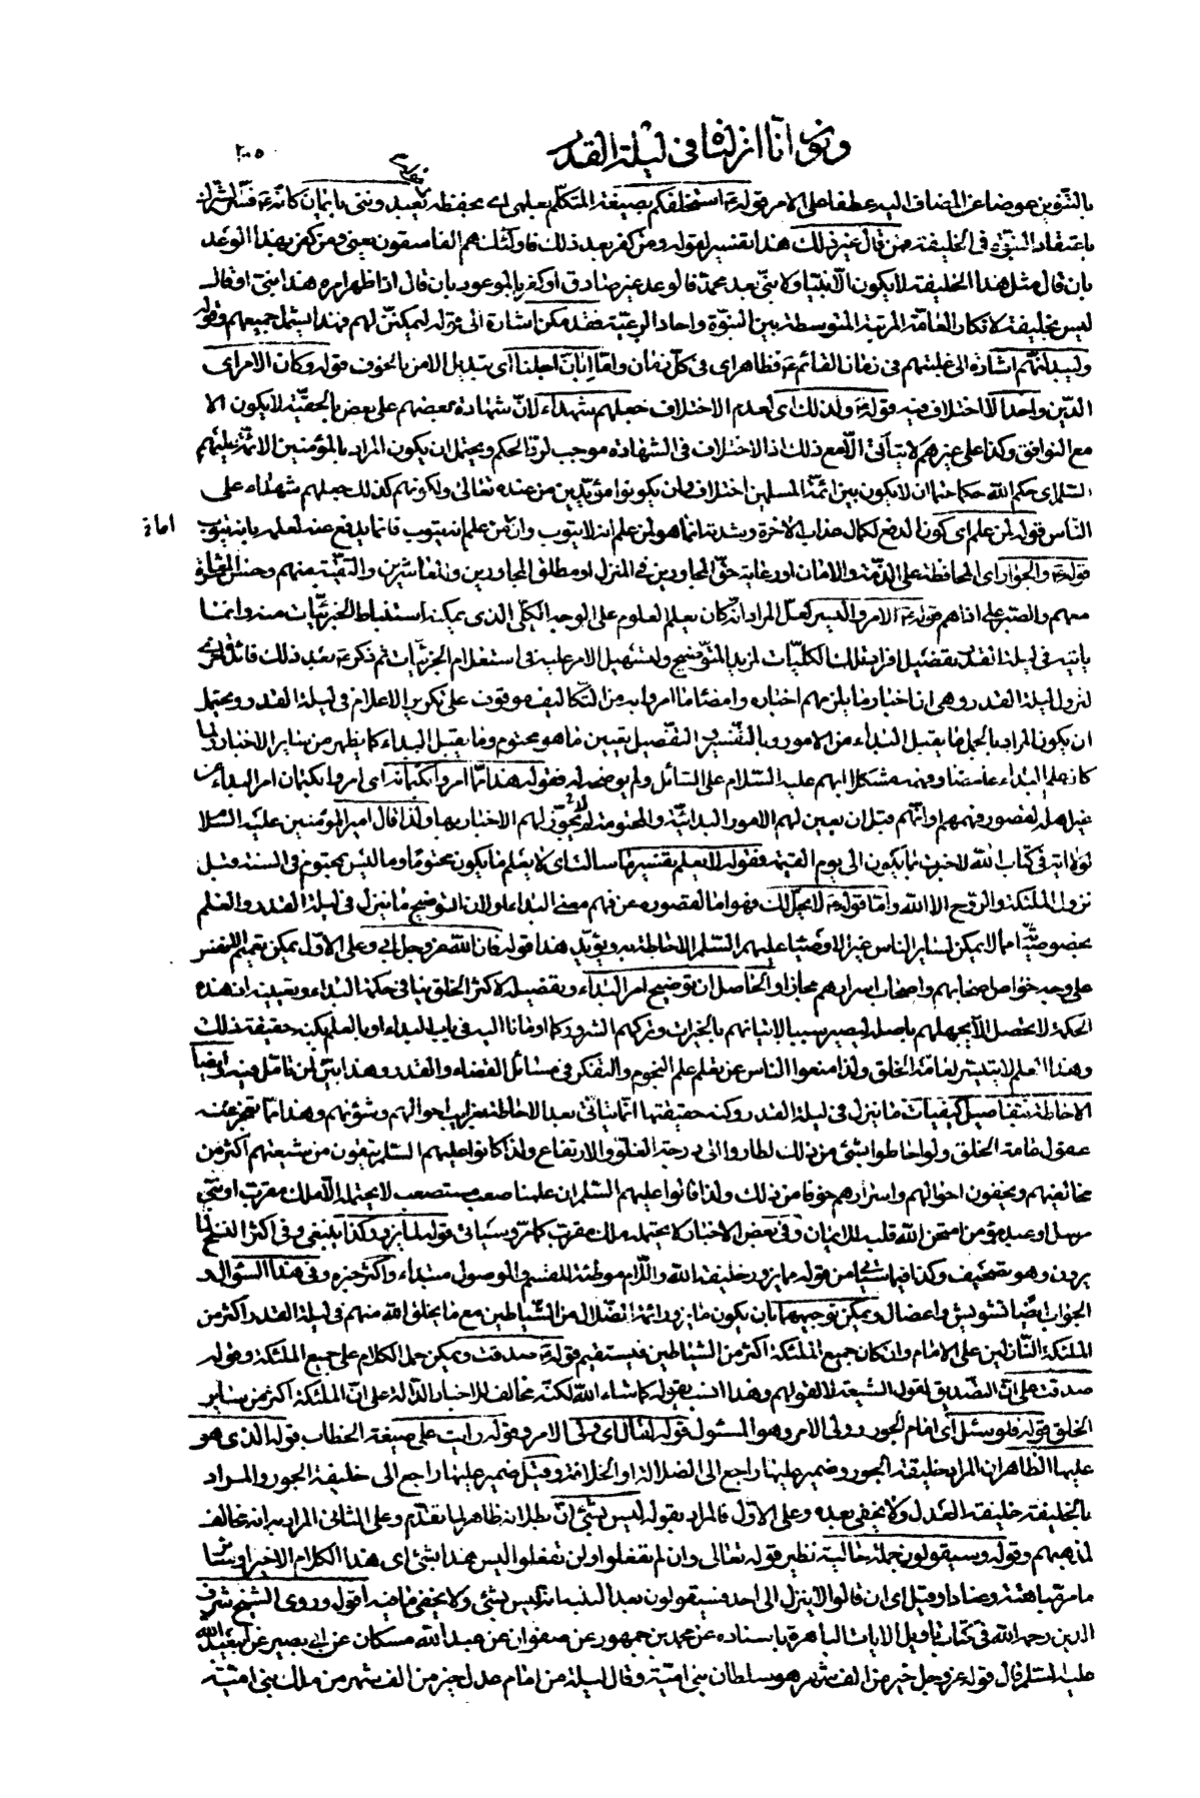 ٢٠٥ ونور انا انزلناه فى ليلة القدر
بالتنوين عوضا عن المضاف اليه عطفا على الامر قوله استخلفكم بصيغة المتكلم بعلمى اى بحفظه تعبد ونبى بايمان كانه فسر الشرك
باعتقاد النبوة فى الخليفة فمن قال غير ذلك هذا تفسير لقوله ومن كفر بعد ذلك فاولئك هم الفاسقون يعنى ومن كفر بهذا الوعد
بان قال مثل هذا الخليفة لا يكون الا نبيا ولا نبى بعد محمد فالوعد غير صادق او كفر بالموعود بان قال اذا ظهر امره هذا نبى او قال
ليس بخليفة لانكار العامة المرتبة المتوسطة بين النبوة واحاد الرعية فقد مكن اشارة الى قوله ليمكنن لهم فهذا يشمل جميعهم وقوله
وليبدلنهم اشارة الى غلبتهم فى زمان القائم فظاهر اى فى كل زمان واما ابان اجلنا اى تبديل الامن بالخوف قوله وكان الامر اى
الدين واحدا لا اختلاف فيه قوله ولذلك اى لعدم الاختلاف جعلهم شهداء لان شهادة بعضهم على بعض بالحقية لا يكون الا
مع التوافق وكذا على غيرهم لا يتأتى الا مع ذلك اذ الاختلاف فى الشهادة موجب لرد الحكم ويحتمل ان يكون المراد بالمؤمنين الائمة عليهم
السلم اى حكم الله حكما حتما ان لا يكون بين ائمة المسلمين اختلاف وان يكونوا مؤيدين من عنده تعالى ولكونهم كذلك جعلهم شهداء على
الناس قوله لمن علم اى كون الدفع لكمال عذاب الاخرة وشدته انما هو لمن علم انه لا يتوب وان من علم انه يتوب فانما يدفع عنه لعلمه بانه يتوب
قوله والجوار اى المحافظة على الذمة والامان او رعاية حق المجاورين فى المنزل او مطلق المجاورين والمعاشرين والتقية منهم وحسن المعاشرة
معهم والصبر على اذاهم قوله الامر واليسر لعل المراد انه كان يعلم العلوم على الوجه الكلى الذى يمكنه استنباط الجزئيات منه وانما
ياتيه فى ليلة القدر تفصيل افراد تلك الكليات لمزيد التوضيح ولتسهيل الامر عليه فى استعلام الجزئيات ثم ذكر بعد ذلك فائدة اخرى
لنزول ليلة القدر وهى ان اخبار ما يلزمهم اخباره وامضاء ما امروا به من التكاليف موقوف على تكرير الاعلام فى ليلة القدر ويحتمل
ان يكون المراد بالجمل ما يقبل البداء من الامور وبالتفسير والتفصيل تعيين ما هو محتوم وما يقبل البداء كما يظهر من سائر الاخبار ولما
كان علم البداء غامضا وفهمه مشكلا ابهم عليه السلام على السائل ولم يوضحه له فقوله هذا مما امروا بكتمانه اى امروا بكتمان امر البداء عن
غير اهله لقصور فهمهم او انهم قبل ان يعين لهم الامور البدائية والمحتومة لا يجوز لهم الاخبار بها ولذا قال امير المؤمنين عليه السلام
لولا اية فى كتاب الله لاخبرت بما يكون الى يوم القيمة فقوله لا يعلم تفسير ما سالت اى لا يعلم ما يكون محتوما وما ليس بمحتوم فى السنة قبل
نزول الملئكة والروح الا الله واما قوله لا يحل لك فهو اما لقصوره عن فهم معنى البداء او لان توضيح ما ينزل فى ليلة القدر والعلم
بخصوصياته مما لا يمكن لسائر الناس غير الاوصياء عليهم السلم الاحاطة به ويؤيد هذا قوله فان الله عز وجل ابى وعلى الاول يمكن تعميم الانفس
على وجه خواص اصحابهم واصحاب اسرارهم مجازا والحاصل ان توضيح امر البداء وتفصيله لاكثر الخلق ينافى حكمة البداء وتعيينه اذ هذه
الحكمة لا تحصل الا بجهلهم باصله ليصير سببا لاتيانهم بالخيرات وتركهم الشرور كما اومأنا اليه فى باب البداء او بالعلم بكنه حقيقة ذلك
وهذا العلم لا يتيسر لعامة الخلق ولذا منعوا الناس عن تعلم علم النجوم والتفكر فى مسائل القضاء والقدر وهذا بين لمن تأمل فيه وايضا
الاحاطة بتفاصيل كيفيات ما ينزل فى ليلة القدر وكنه حقيقتها انما يتأتى بعد الاحاطة بغرايب احوالهم وشؤنهم وهذا مما تعجز عنه
عقول عامة الخلق ولو احاطوا بشئ من ذلك لطاروا الى درجة الغلو والارتفاع ولذا كانوا عليهم السلم يتقون من شيعتهم اكثر من
مخالفيهم ويخفون احوالهم واسرارهم خوفا من ذلك ولذا قالوا عليهم السلم ان علمنا صعب مستصعب لا يحتمله الا ملك مقرب او نبى
مرسل او عبد مؤمن امتحن الله قلبه للايمان وفى بعض الاخبار لا يحتمله ملك مقرب كما مر وسياتى قوله لما يزور كذا ينبغى وفى اكثر النسخ لما
يرون وهو تصحيف وكذا فيما سياتى من قوله ما يزور خليفة الله واللام موطئة للقسم والموصول مبتداء واكثر خبره وفى هذا السؤال و
الجواب ايضا تشويش واعضال ويمكن توجيههما بان يكون ما يزور ائمة الضلال من الشياطين مع ما يخلق الله منهم فى ليلة القدر اكثر من
الملئكة النازلين على الامام وان كان جميع الملئكة اكثر من الشياطين فيستقيم قوله صدقت ويمكن حمل الكلام على جميع الملئكة وقوله
صدقت على ان التصديق لقول الشيعة لا لقولهم وهذا انسب بقوله كما شاء الله لكنه مخالف للاخبار الدالة على ان الملئكة اكثر من سائر
الخلق قوله فلو سئل اى امام الجور وولى الامر وهو المسئول قوله لقال اى ولى الامر وقوله رايت على صيغة الخطاب قوله الذى هو
عليها الظاهر ان المراد خليفة الجور وضمير عليها راجع الى الضلالة او الخلافة وقيل ضمير عليها راجع الى خليفة الجور والمراد
بالخليفة خليفة العدل ولا يخفى بعده وعلى الاول فالمراد بقوله ليس بشئ ان بطلانه ظاهر لما تقدم وعلى الثانى المراد به انه مخالف
لمذهبهم وقوله وسيقولون جملة حالية نظير قوله تعالى وان لم تفعلوا ولن تفعلوا ليس هذا بشئ اى هذا الكلام الاخير او سائر
ما مر مباهتة وعنادا وقيل اى ان قالوا لا ينزل الى احد فسيقولون بعد التنبيه انه ليس بشئ ولا يخفى ما فيه اقول وروى الشيخ شرف
الدين رحمه الله فى كتاب تاويل الايات الباهرة باسناده عن محمد بن جمهور عن صفوان عن عبد الله مسكان عن ابى بصير عن ابى عبد الله
عليه السلم قال قوله عز وجل خير من الف شهر هو سلطان بنى امية وقال ليلة من امام عدل خير من الف شهر من ملك بنى امية